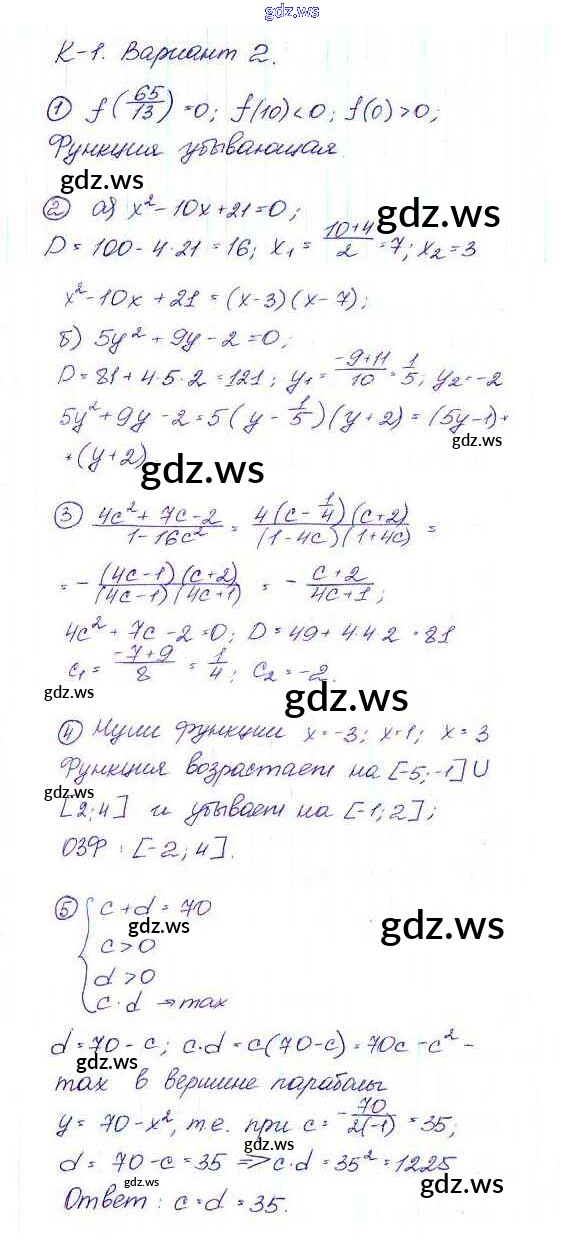 gdz.ws
К-1. Вариант 2.
① f(65/13)=0; f(10)<0; f(0)>0;
Функция убывающая.
gdz.ws
② а) x²-10x+21=0;
gdz.ws
D=100-4·21=16; x₁=(10+4)/2=7; x₂=3
x²-10x+21=(x-3)(x-7);
б) 5y²+9y-2=0;
D=81+4·5·2=121; y₁=(-9+11)/10=1/5; y₂=-2
5y²+9y-2=5(y-1/5)(y+2)=(5y-1)*
gdz.ws
*(y+2)
gdz.ws
③ (4c²+7c-2)/(1-16c²)=(4(c-1/4)(c+2))/((1-4c)(1+4c))=
=-((4c-1)(c+2))/((4c-1)(4c+1))=-(c+2)/(4c+1);
4c²+7c-2=0; D=49+4·4·2=81
c₁=(-7+9)/8=1/4; c₂=-2.
gdz.ws
gdz.ws
④ Нули функции x=-3; x=1; x=3
Функция возрастает на [-5;-1]U
gdz.ws
[2;4] и убывает на [-1;2];
ОЗФ: [-2;4].
⑤ {c+d=70
gdz.ws
gdz.ws
c>0
d>0
c·d→max
d=70-c; c·d=c(70-c)=70c-c²-
gdz.ws
max в вершине параболы
y=70-x², т.е. при c=-70/2(-1)=35;
gdz.ws
d=70-c=35=>c·d=35²=1225
gdz.ws
gdz.ws
Ответ: c=d=35.